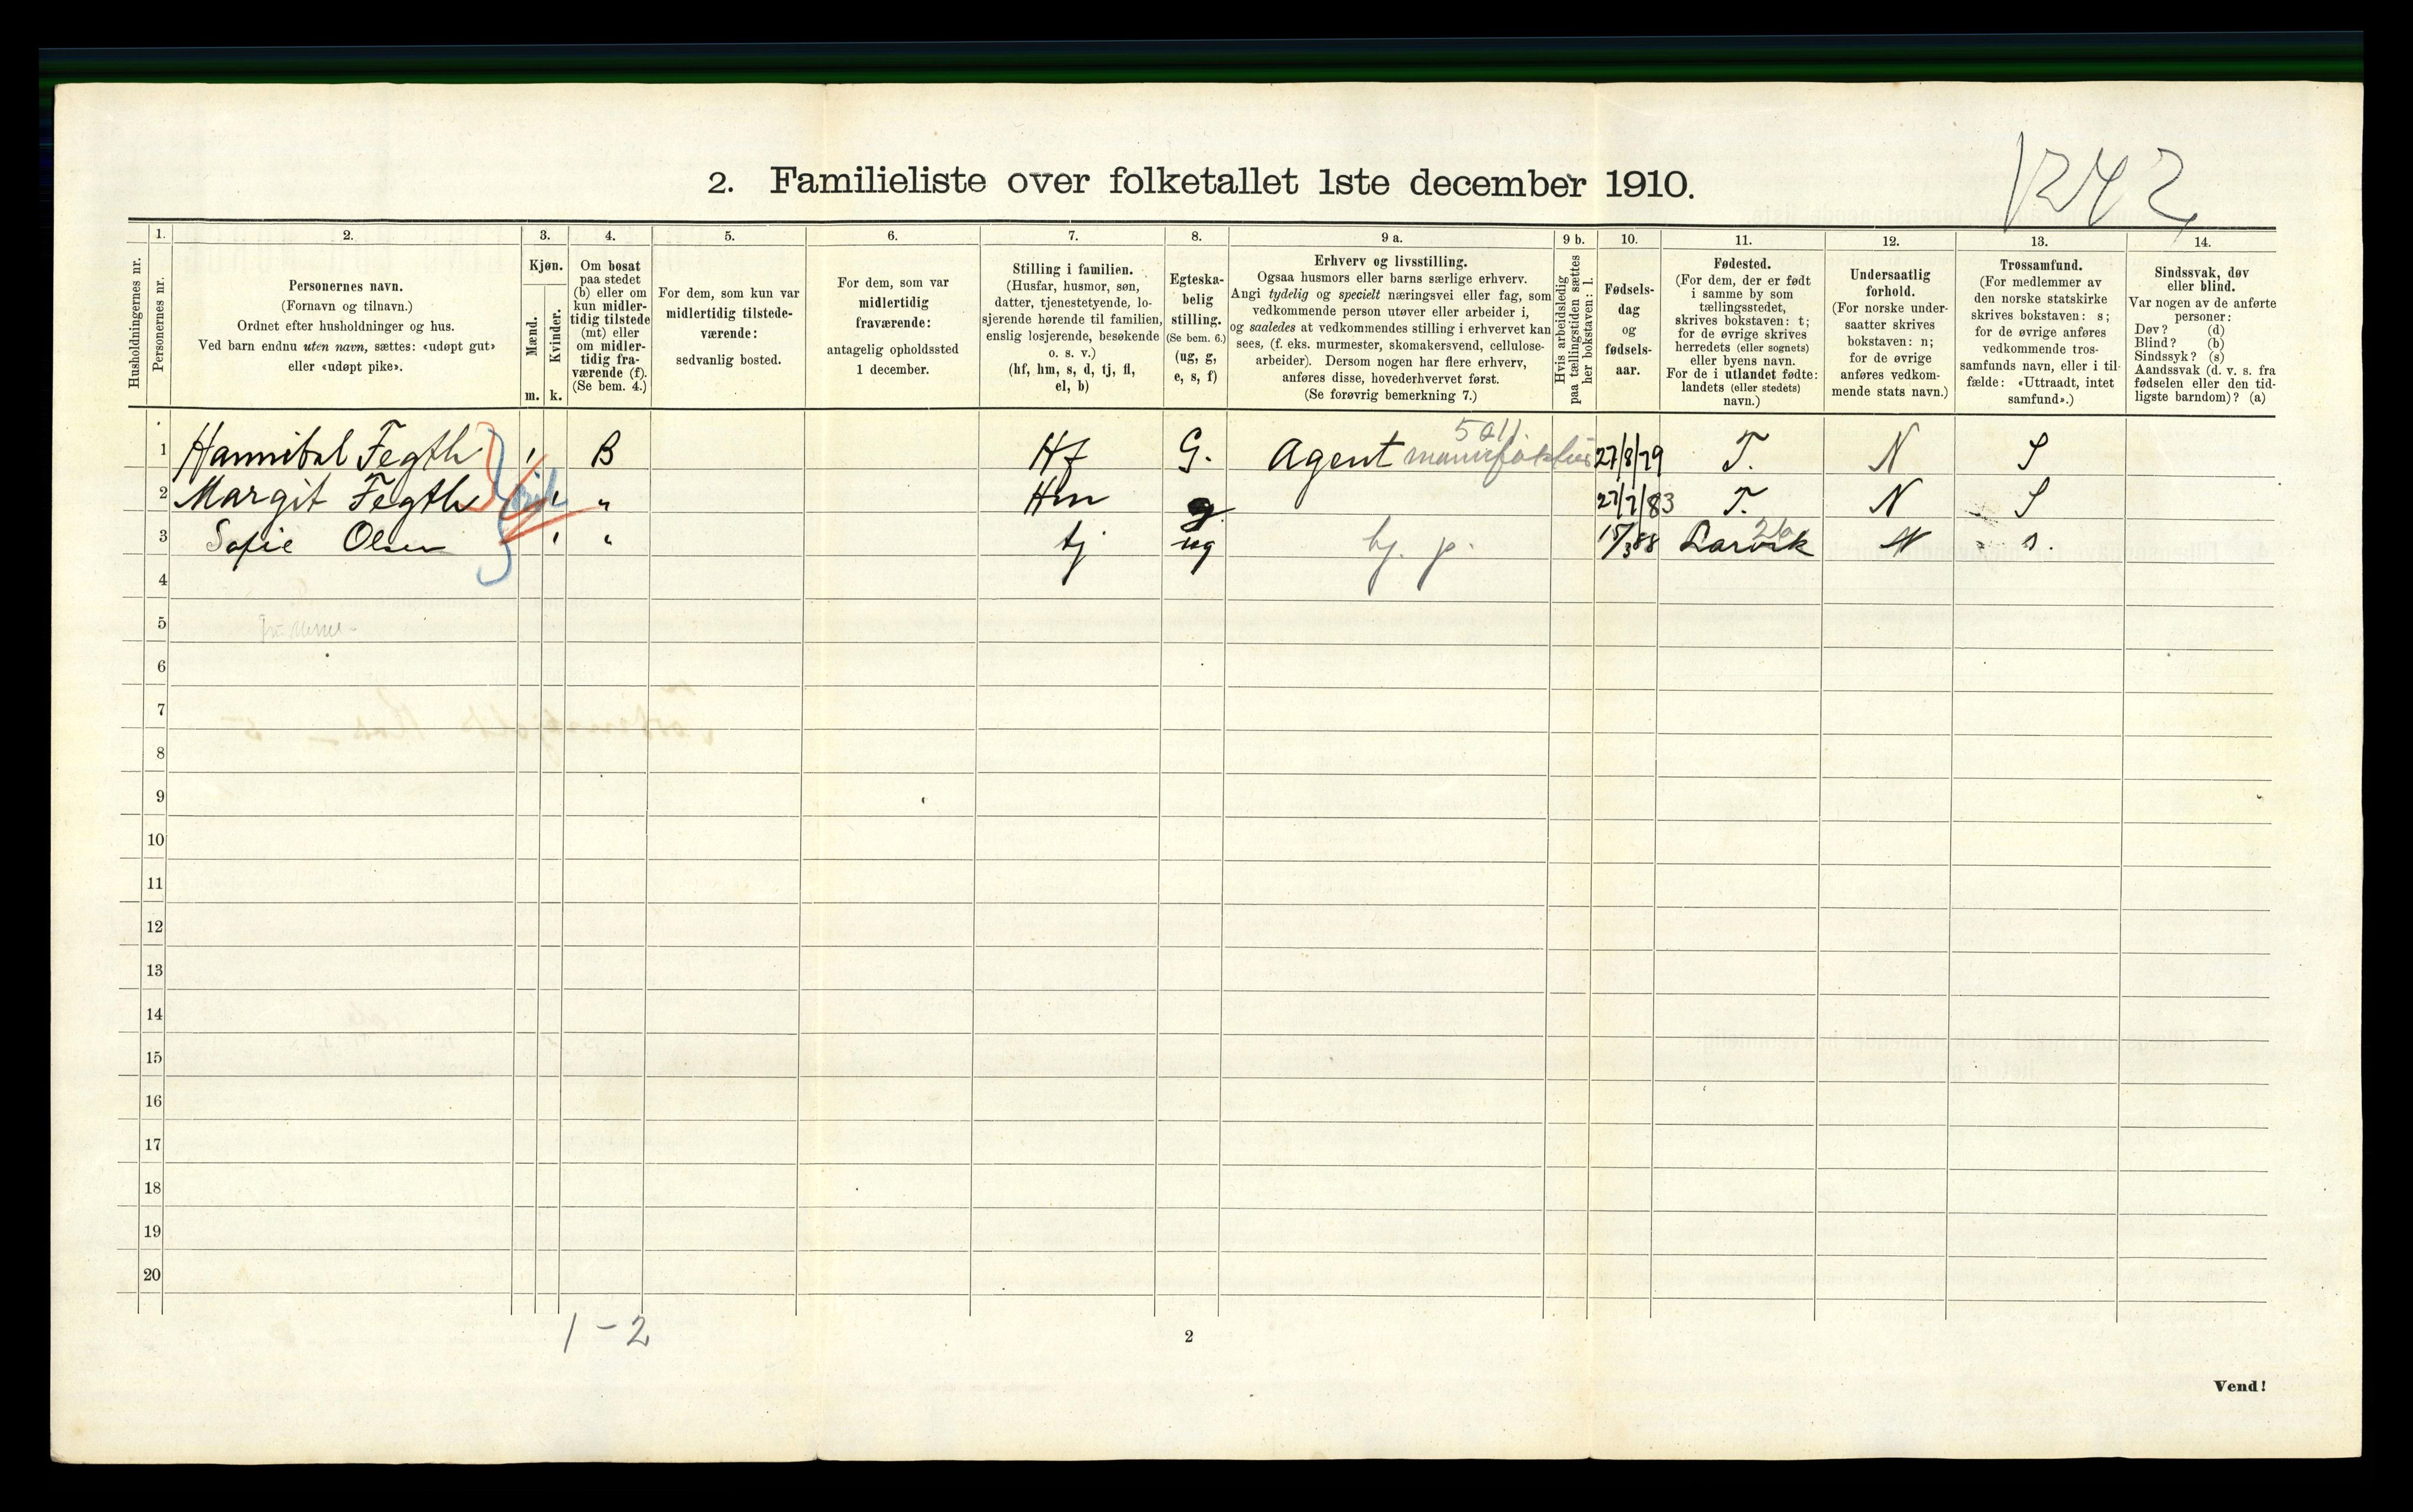 1242
2. Familieliste over folketallet 1ste december 1910.
Husholdningernes nr.
1.
Personernes nr.
2.
Personernes navn.
(Fornavn og tilnavn.)
Ordnet efter husholdninger og hus.
Ved barn endnu uten navn, sættes: «udøpt gut»
eller «udøpt pike».
3.
Kjøn.
Mænd.
m.
Kvinder.
k.
4.
Om bosat
paa stedet
(b) eller om
kun midler-
tidig tilstede
(mt) eller
om midler-
tidig fra-
værende (f).
(Se bem. 4.)
5.
For dem, som kun var
midlertidig tilstede-
værende:
sedvanlig bosted.
6.
For dem, som var
midlertidig
fraværende:
antagelig opholdssted
1 december.
7.
Stilling i familien.
(Husfar, husmor, søn,
datter, tjenestetyende, lo-
sjerende hørende til familien,
enslig losjerende, besøkende
o. s. v.)
(hf, hm, s, d, tj, fl,
el, b)
8.
Egteska-
belig
stilling.
(Se bem. 6.)
(ug, g,
e, s, f)
9 a.
Erhverv og livsstilling.
Ogsaa husmors eller barns særlige erhverv.
Angi tydelig og specielt næringsvei eller fag, som
vedkommende person utøver eller arbeider i,
og saaledes at vedkommendes stilling i erhvervet kan
sees, (f. eks. murmester, skomakersvend, cellulose-
arbeider). Dersom nogen har flere erhverv,
anføres disse, hovederhvervet først.
(Se forøvrig bemerkning 7.)
9 b.
Hvis arbeidsledig
paa tællingstiden sættes
her bokstaven: l.
10.
Fødsels-
dag
og
fødsels-
aar.
11.
Fødested.
(For dem, der er født
i samme by som
tællingsstedet,
skrives bokstaven: t;
for de øvrige skrives
herredets (eller sognets)
eller byens navn.
For de i utlandet fødte:
landets (eller stedets)
navn.)
12.
Undersaatlig
forhold.
(For norske under-
saatter skrives
bokstaven: n;
for de øvrige
anføres vedkom-
mende stats navn.)
13.
Trossamfund.
(For medlemmer av
den norske statskirke
skrives bokstaven: s;
for de øvrige anføres
vedkommende tros-
samfunds navn, eller i til-
fælde: «Uttraadt, intet
samfund».)
14.
Sindssvak, døv
eller blind.
Var nogen av de anførte
personer:
Døv? (d)
Blind? (b)
Sindssyk? (s)
Aandssvak (d. v. s. fra
fødselen eller den tid-
ligste barndom)? (a)
1 Hannibal Fegth 1 B Hf G. Agent manufaktur 27/8/79 T. N S
2 Margit Fegth 1 " Hm g. 27/7/83 T. N S
3 Sofie Olsen 1 " tj ug hj. p. 15/3 88 Larvik N s
4
5
6
7
8
9
10
11
12
13
14
15
16
17
18
19
20
1 - 2
2
Vend!